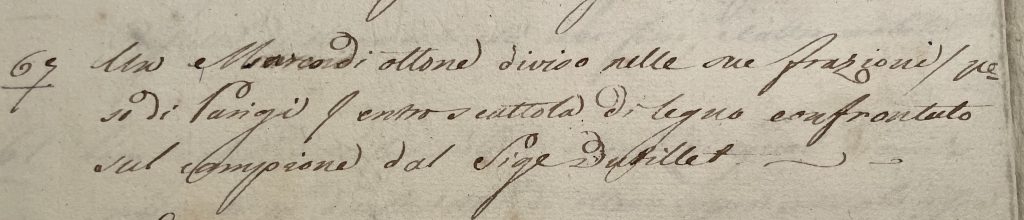 67 Un Marco di ottone diviso nelle sue frazioni / pe=
so di Parigi / entro scattola di legno confrontato
sul campione dal Sige Dutillet